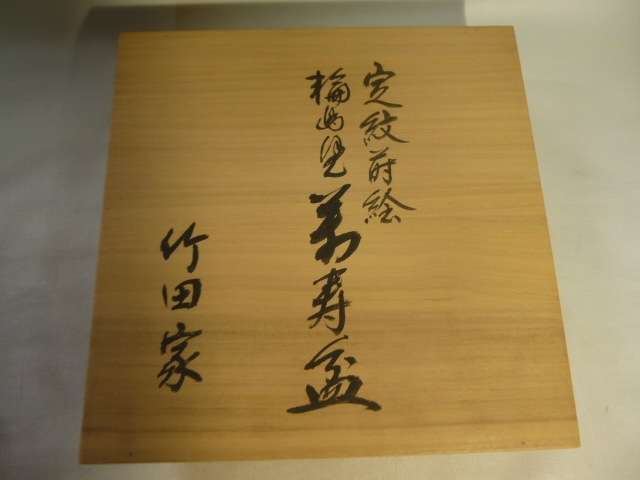 定紋蒔絵
輪島塗萬寿盆
竹田家